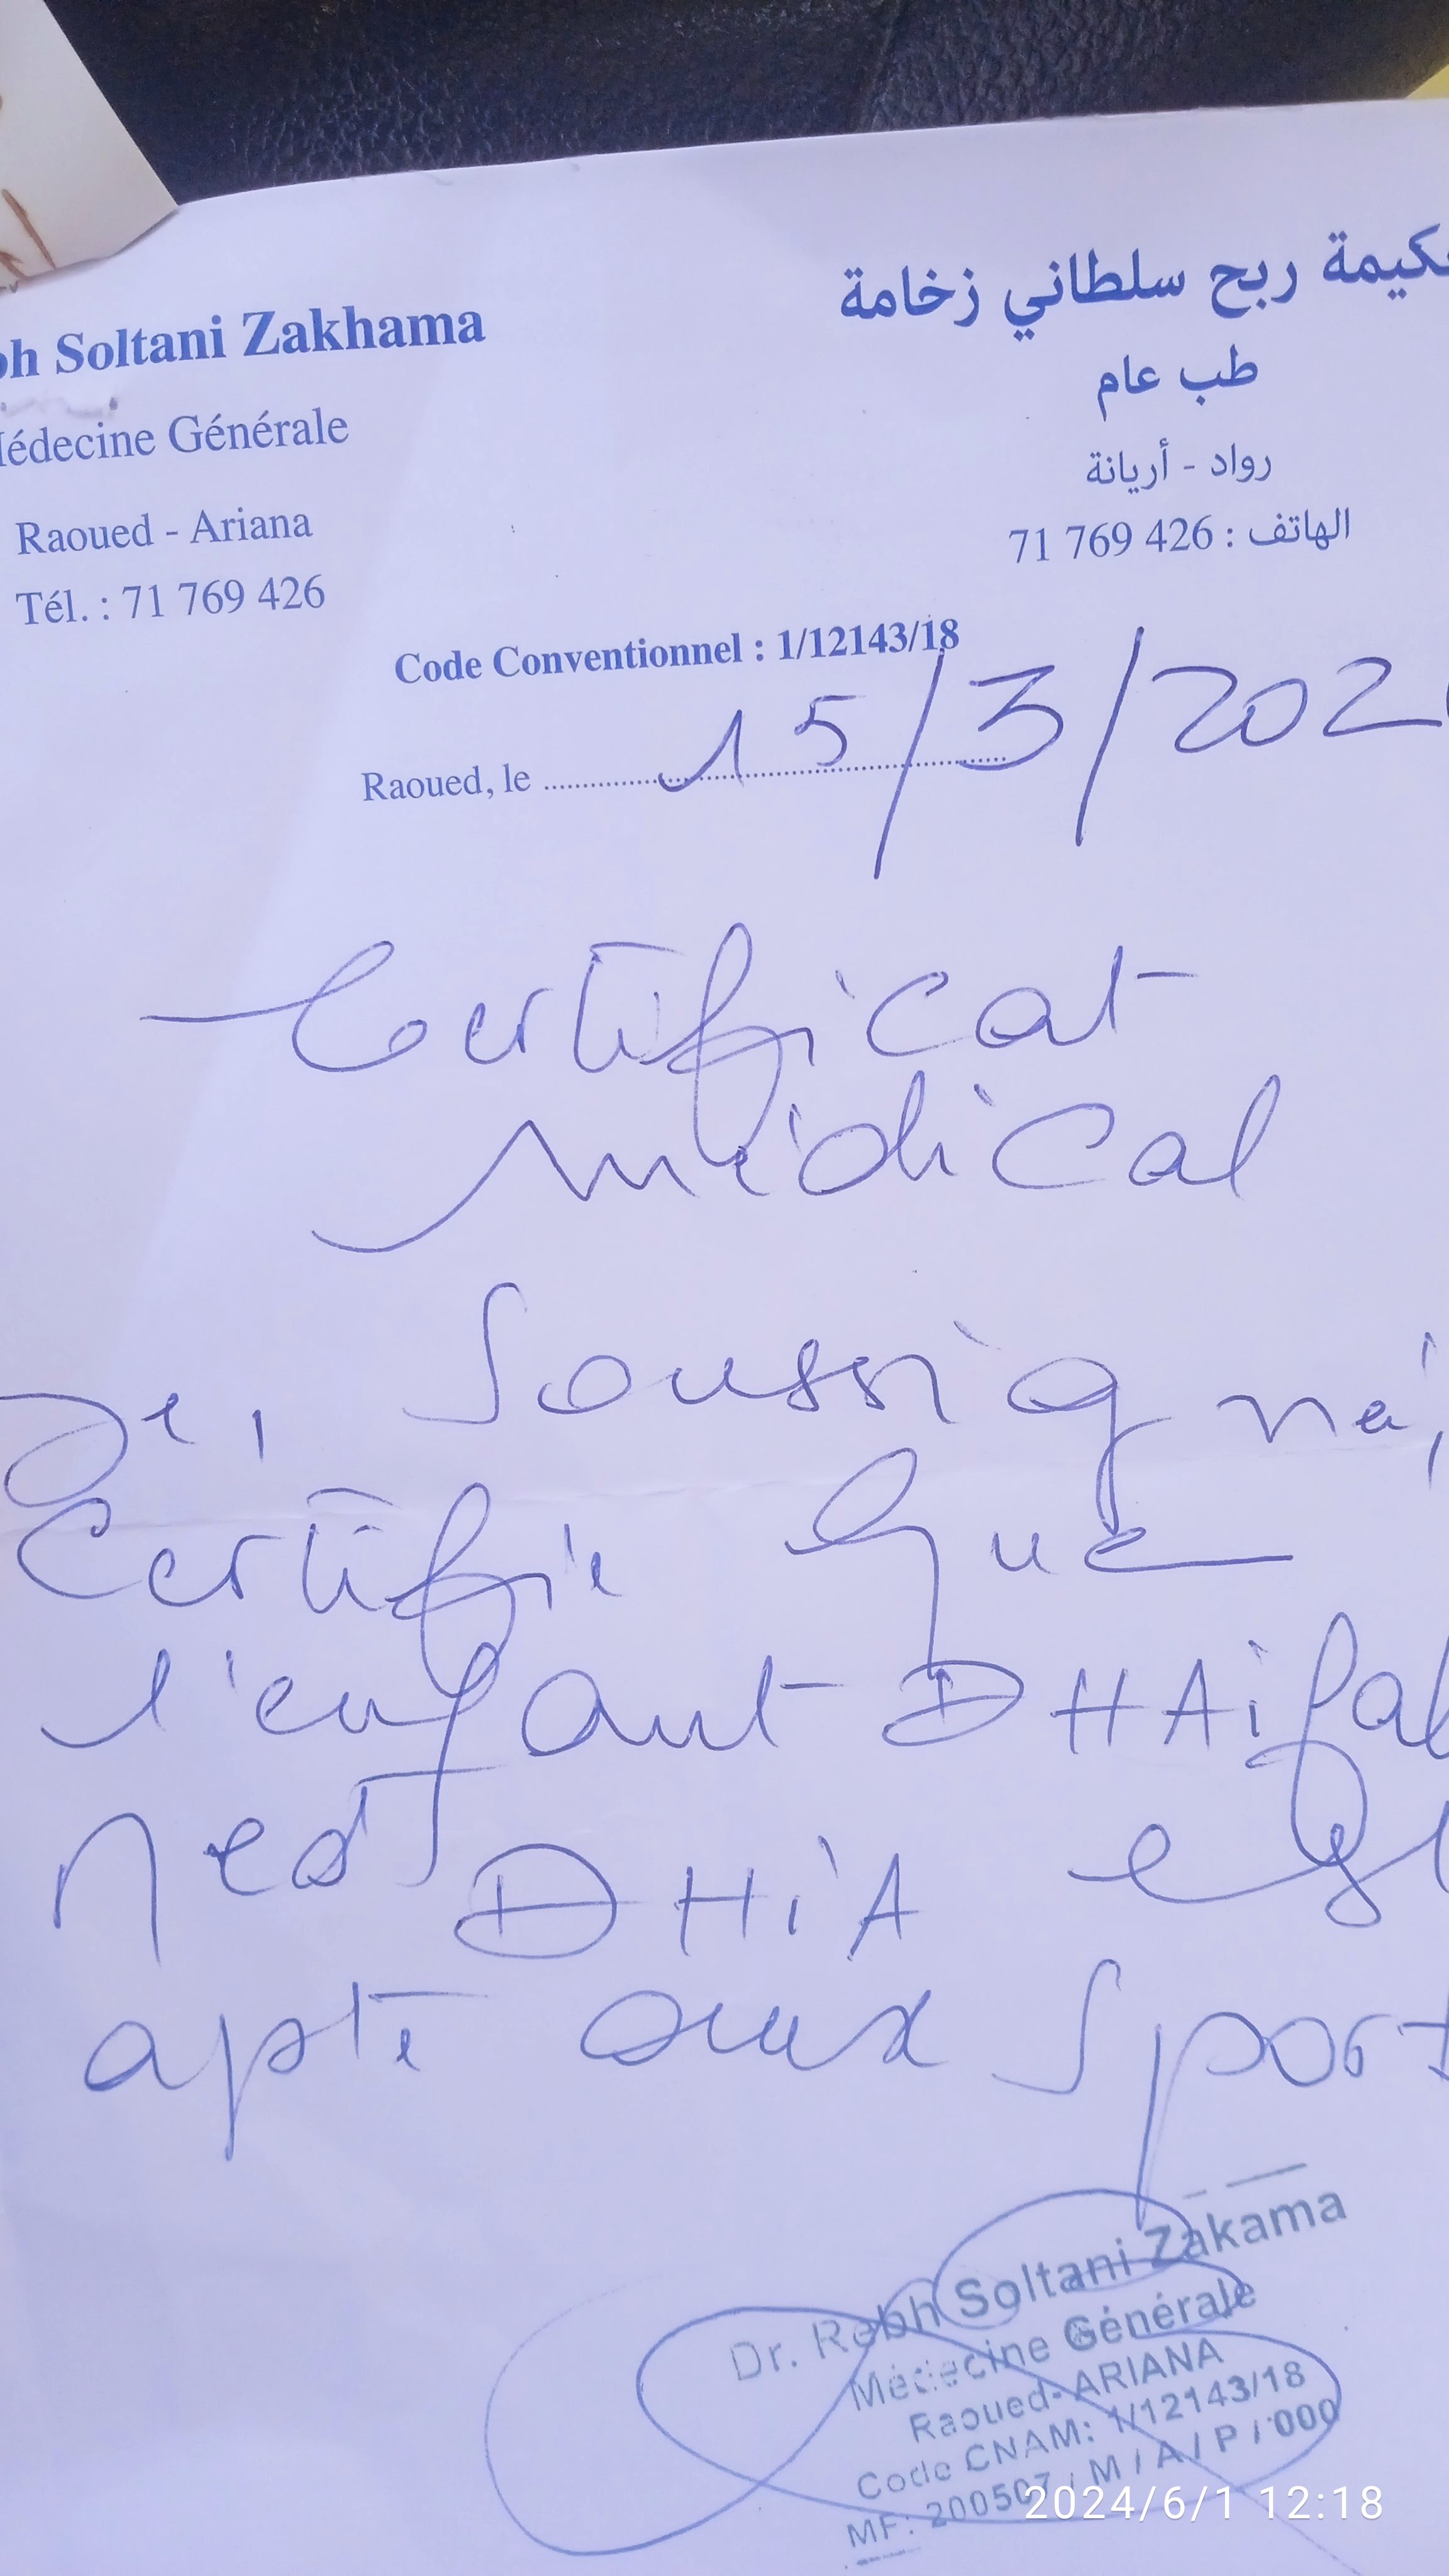 bh Soltani Zakhama
Médecine Générale
Raoued - Ariana
Tél. : 71 769 426
كيمة ربح سلطاني زخامة
طب عام
رواد - أريانة
الهاتف : 71 769 426
Code Conventionnel : 1/12143/18
Raoued, le 15/3/202
Certificat
médical
Je, Soussigné,
Certifie que
l'enfant DHAifal
Med DHiA est
apte aux sport
Dr. Rebh Soltani Zakama
Médecine Générale
Raoued- ARIANA
Code CNAM: 1/12143/18
MF: 200507 / M / A / P / 000
2024/6/1 12:18